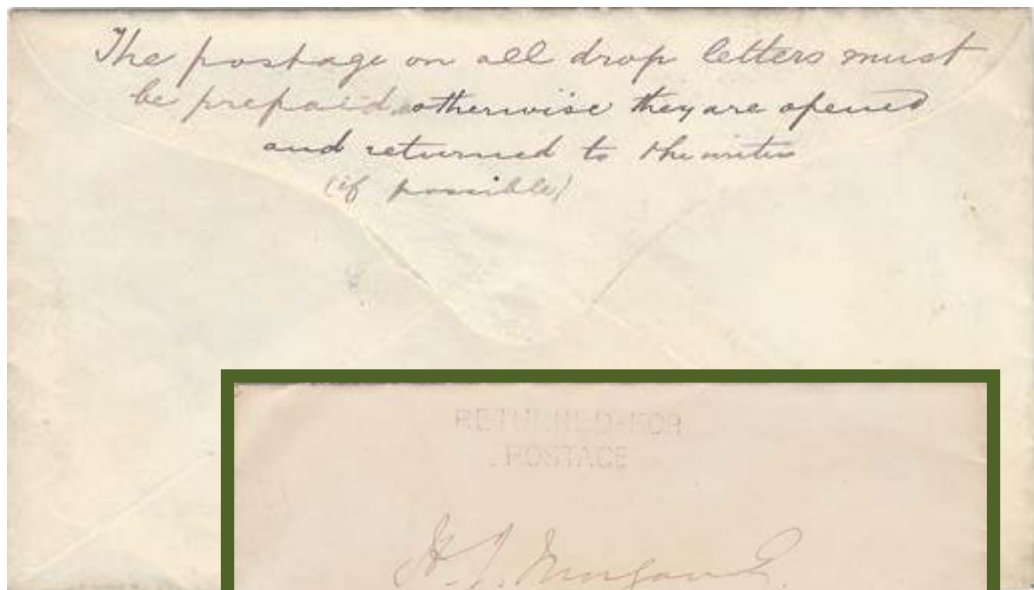 The postage on all drop letters must
be prepaid otherwise they are opened
and returned to the writer
(if possible)
RETURNED FOR
POSTAGE
H. J. Morgan E.